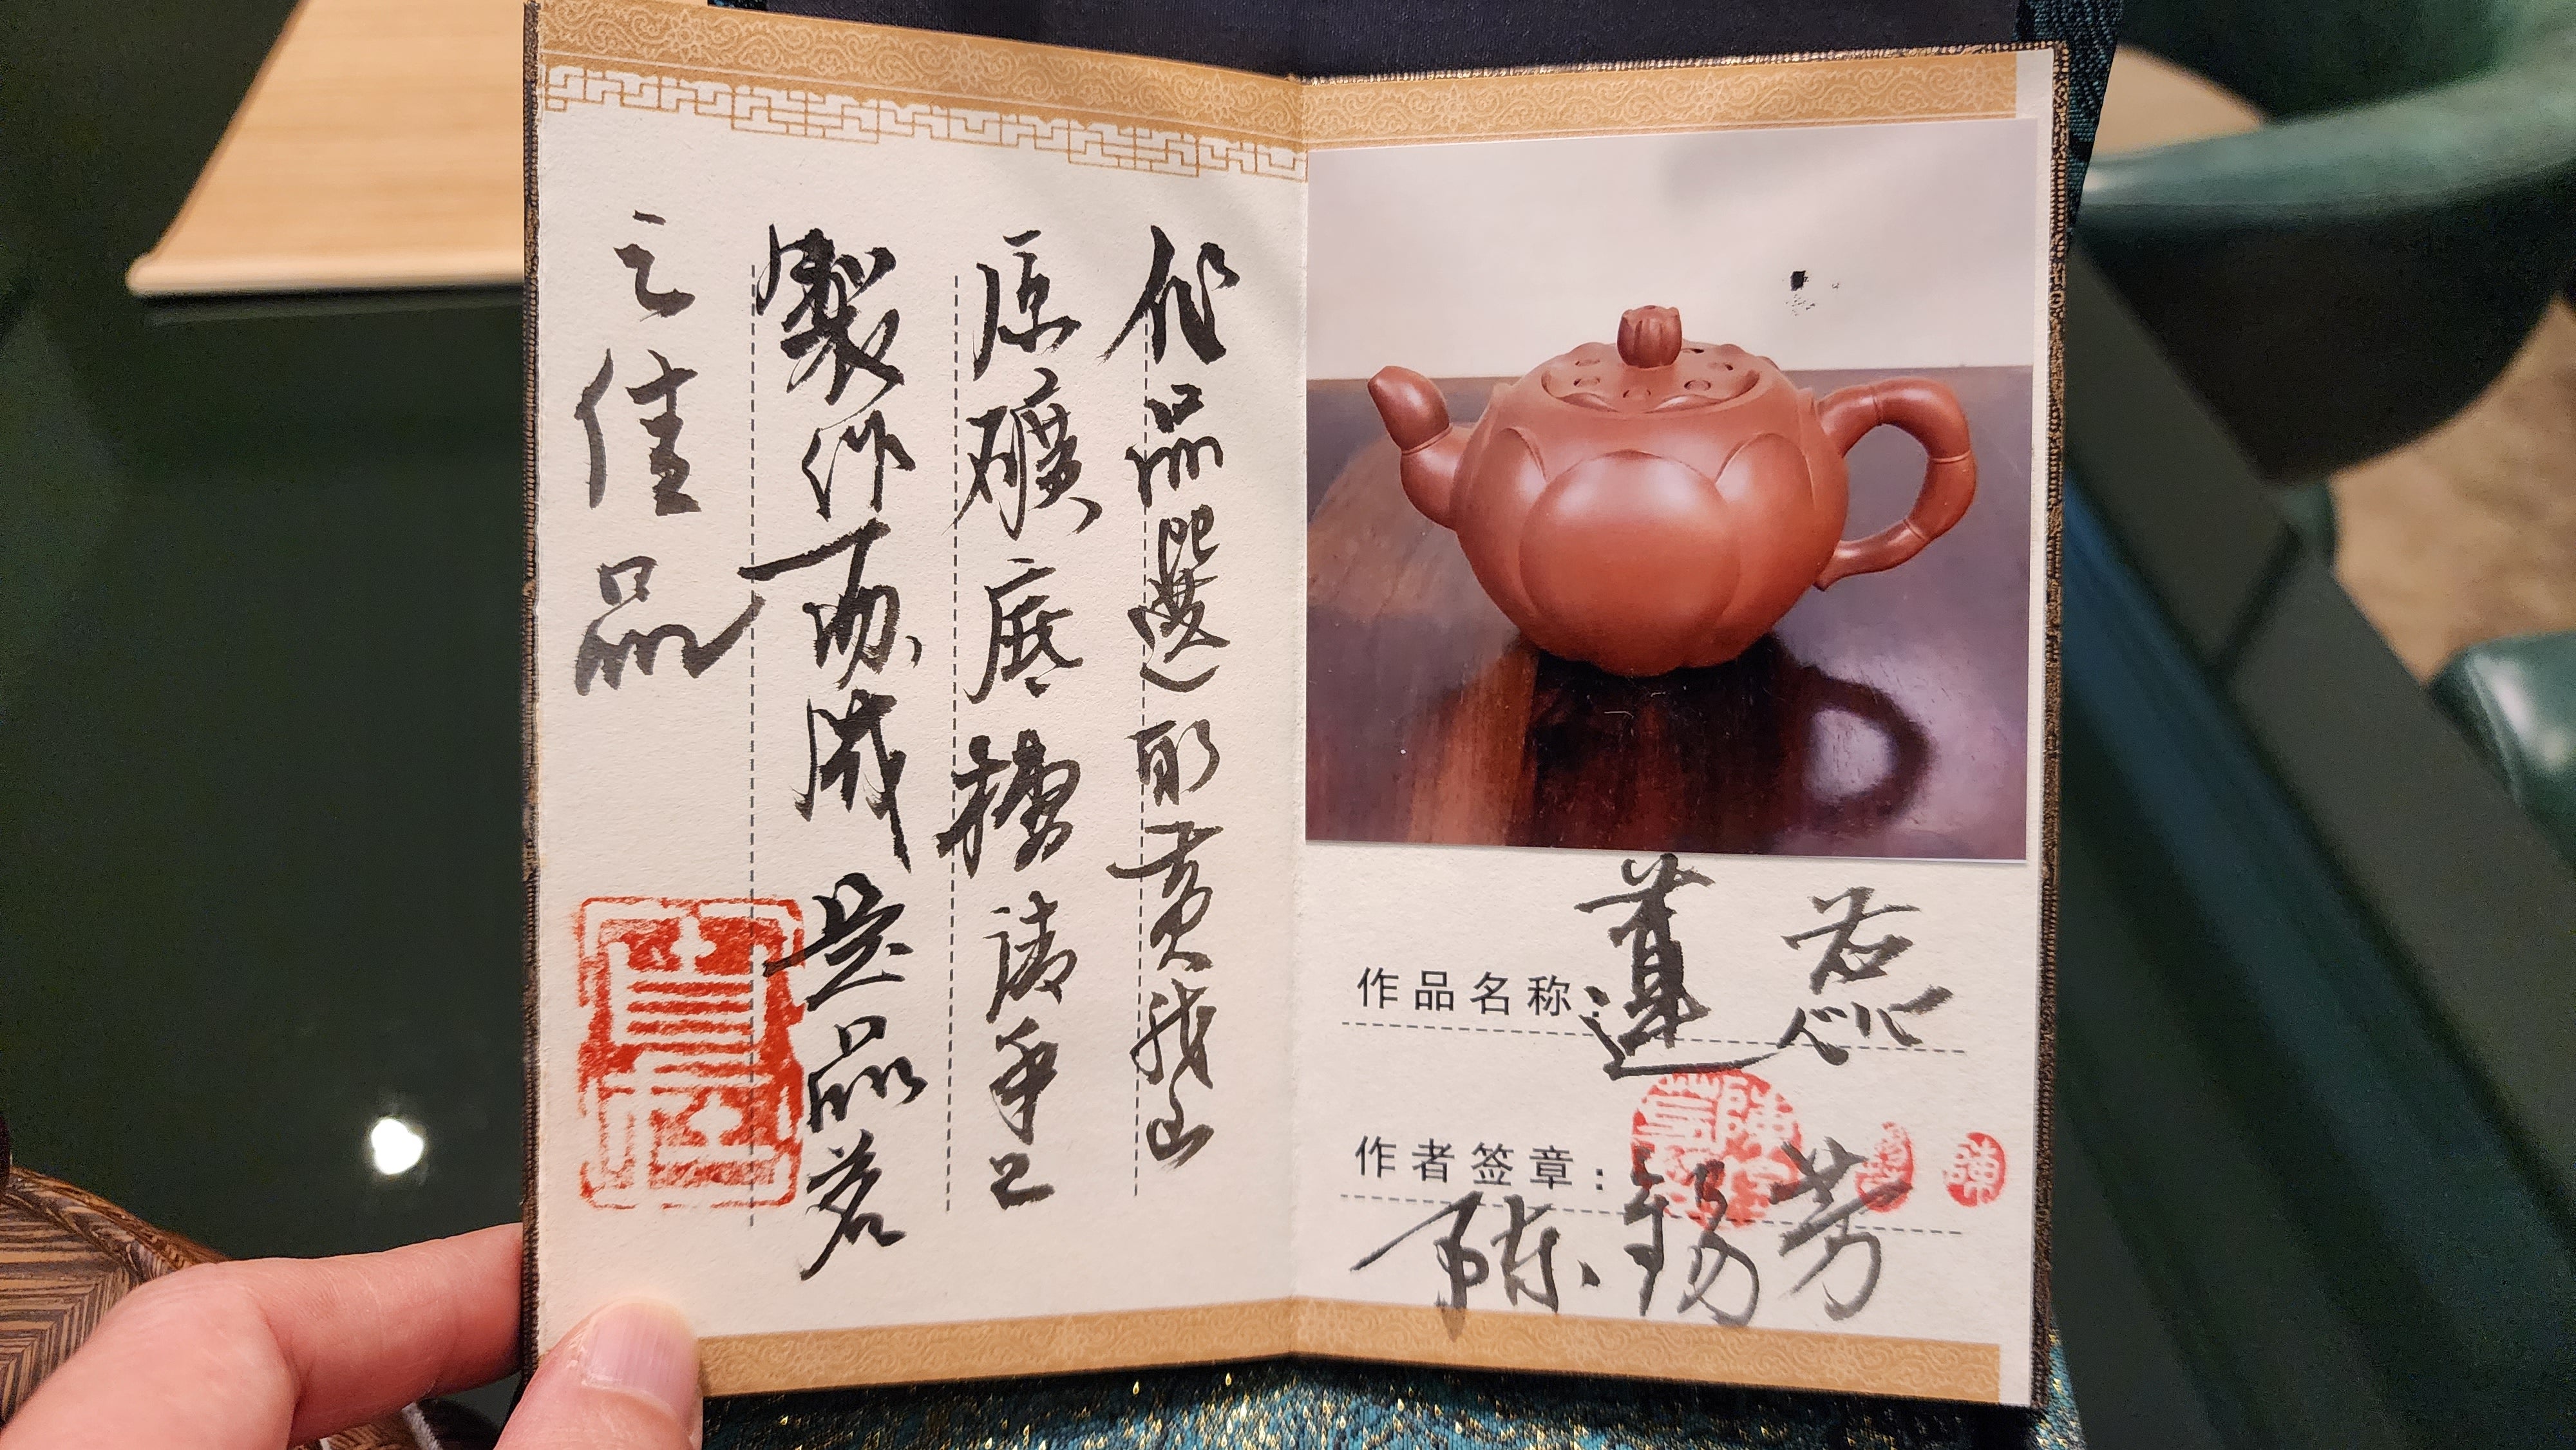 作品選取黄龙山
原礦底槽清手工
製作而成是品茗
之佳品
作品名称：蓮蕊
作者签章：陈锡芳
陳